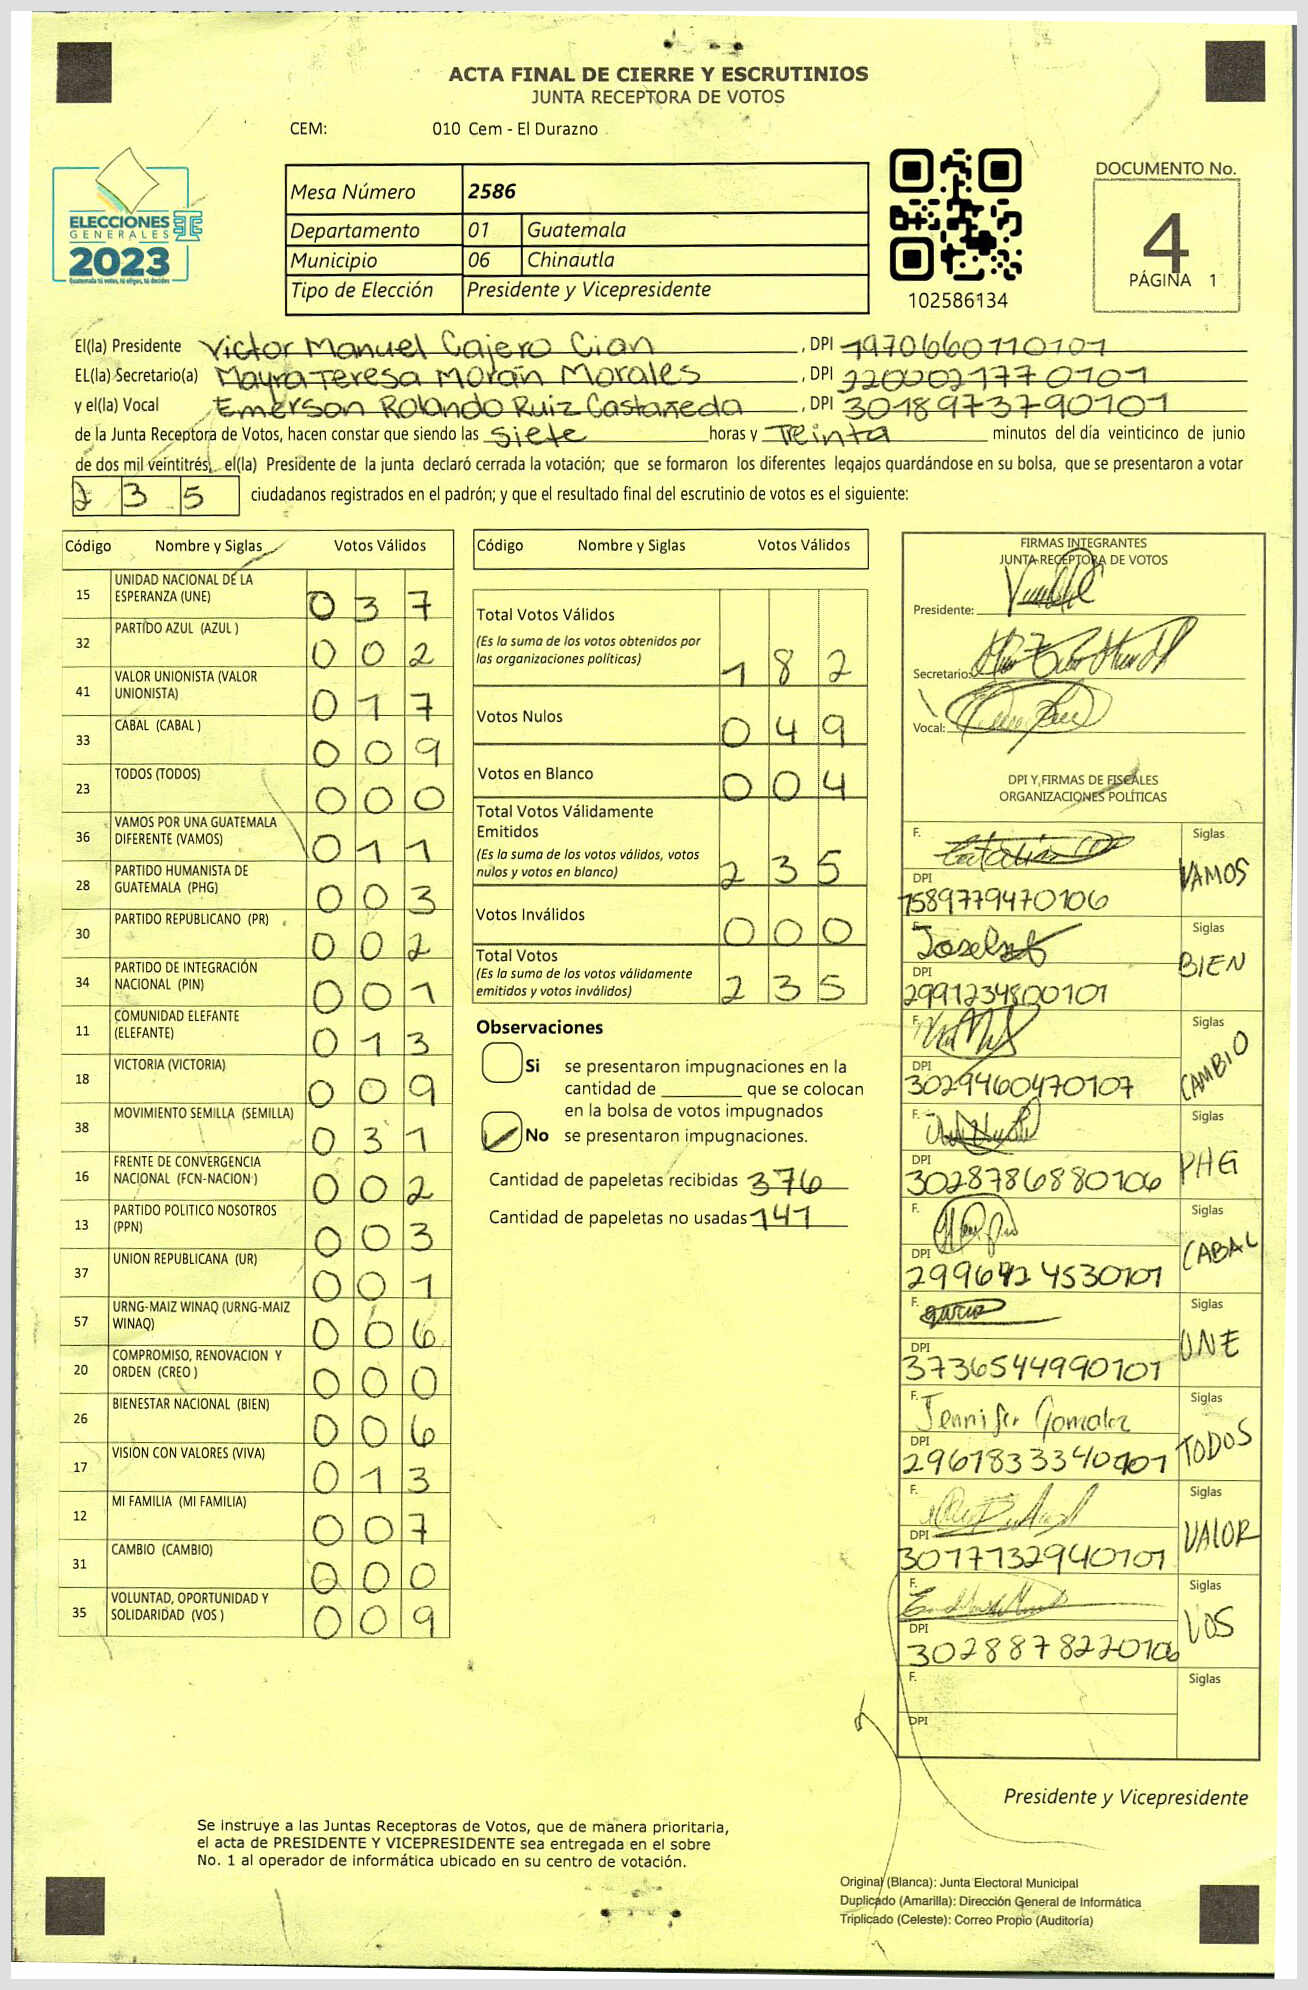 ACTA FINAL DE CIERRE Y ESCRUTINIOS
JUNTA RECEPTORA DE VOTOS
CEM: 010 Cem - El Durazno
ELECCIONES
GENERALES
2023
Guatemala tú votas, tú eliges, tú decides
Mesa Número 2586
Departamento 01 Guatemala
Municipio 06 Chinautla
Tipo de Elección Presidente y Vicepresidente
102586134
DOCUMENTO No.
4
PÁGINA 1
El(la) Presidente Victor Manuel Cajero Cian, DPI 1970660110101
EL(la) Secretario(a) Mayra Teresa Morán Morales, DPI 2200021770101
y el(la) Vocal Emerson Rolando Ruiz Castañeda, DPI 3018973790101
de la Junta Receptora de Votos, hacen constar que siendo las siete horas y Treinta minutos del día veinticinco de junio
de dos mil veintitrés, el(la) Presidente de la junta declaró cerrada la votación; que se formaron los diferentes legajos guardándose en su bolsa, que se presentaron a votar
235 ciudadanos registrados en el padrón; y que el resultado final del escrutinio de votos es el siguiente:
Código Nombre y Siglas Votos Válidos
15 UNIDAD NACIONAL DE LA ESPERANZA (UNE) 037
32 PARTIDO AZUL (AZUL ) 002
41 VALOR UNIONISTA (VALOR UNIONISTA) 017
33 CABAL (CABAL ) 009
23 TODOS (TODOS) 000
36 VAMOS POR UNA GUATEMALA DIFERENTE (VAMOS) 011
28 PARTIDO HUMANISTA DE GUATEMALA (PHG) 003
30 PARTIDO REPUBLICANO (PR) 002
34 PARTIDO DE INTEGRACIÓN NACIONAL (PIN) 001
11 COMUNIDAD ELEFANTE (ELEFANTE) 013
18 VICTORIA (VICTORIA) 009
38 MOVIMIENTO SEMILLA (SEMILLA) 031
16 FRENTE DE CONVERGENCIA NACIONAL (FCN-NACION ) 002
13 PARTIDO POLITICO NOSOTROS (PPN) 003
37 UNION REPUBLICANA (UR) 001
57 URNG-MAIZ WINAQ (URNG-MAIZ WINAQ) 006
20 COMPROMISO, RENOVACION Y ORDEN (CREO ) 000
26 BIENESTAR NACIONAL (BIEN) 006
17 VISION CON VALORES (VIVA) 013
12 MI FAMILIA (MI FAMILIA) 007
31 CAMBIO (CAMBIO) 000
35 VOLUNTAD, OPORTUNIDAD Y SOLIDARIDAD (VOS ) 009
Código Nombre y Siglas Votos Válidos
Total Votos Válidos
(Es la suma de los votos obtenidos por
las organizaciones políticas) 182
Votos Nulos 049
Votos en Blanco 004
Total Votos Válidamente
Emitidos
(Es la suma de los votos válidos, votos
nulos y votos en blanco) 235
Votos Inválidos 000
Total Votos
(Es la suma de los votos válidamente
emitidos y votos inválidos) 235
Observaciones
Si se presentaron impugnaciones en la
cantidad de ________ que se colocan
en la bolsa de votos impugnados
No se presentaron impugnaciones.
Cantidad de papeletas recibidas 376
Cantidad de papeletas no usadas 141
FIRMAS INTEGRANTES
JUNTA RECEPTORA DE VOTOS
Presidente:
Secretario:
Vocal:
DPI Y FIRMAS DE FISCALES
ORGANIZACIONES POLÍTICAS
F. Siglas VAMOS
DPI 1589779470106
F. Siglas BIEN
DPI 2991234800101
F. Siglas CAMBIO
DPI 3029460470107
F. Siglas PHG
DPI 3028786880106
F. Siglas CABAL
DPI 2996424530101
F. Siglas UNE
DPI 3736544990101
F. Jennifer Gonzalez Siglas TODOS
DPI 2961833340101
F. Siglas VALOR
DPI 3017713294 0101
F. Siglas VOS
DPI 3028878220106
F. Siglas
DPI
Presidente y Vicepresidente
Se instruye a las Juntas Receptoras de Votos, que de manera prioritaria,
el acta de PRESIDENTE Y VICEPRESIDENTE sea entregada en el sobre
No. 1 al operador de informática ubicado en su centro de votación.
Original (Blanca): Junta Electoral Municipal
Duplicado (Amarilla): Dirección General de Informática
Triplicado (Celeste): Correo Propio (Auditoría)